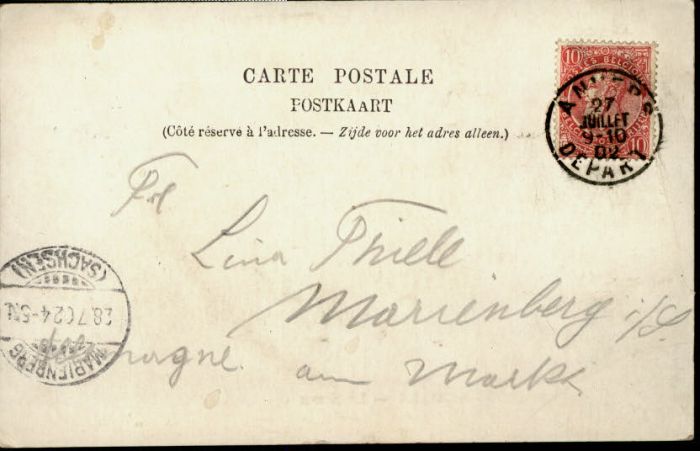 CARTE POSTALE
POSTKAART
(Côté réservé à l'adresse. — Zijde voor het adres alleen.)
10 10
ANVERS
27
JUILLET
9-10
02
DEPART
Frl
Lina Thiele
Marienberg i/S.
am Markt
MARIENBERG
28.7.02 4-5N
(SACHSEN)